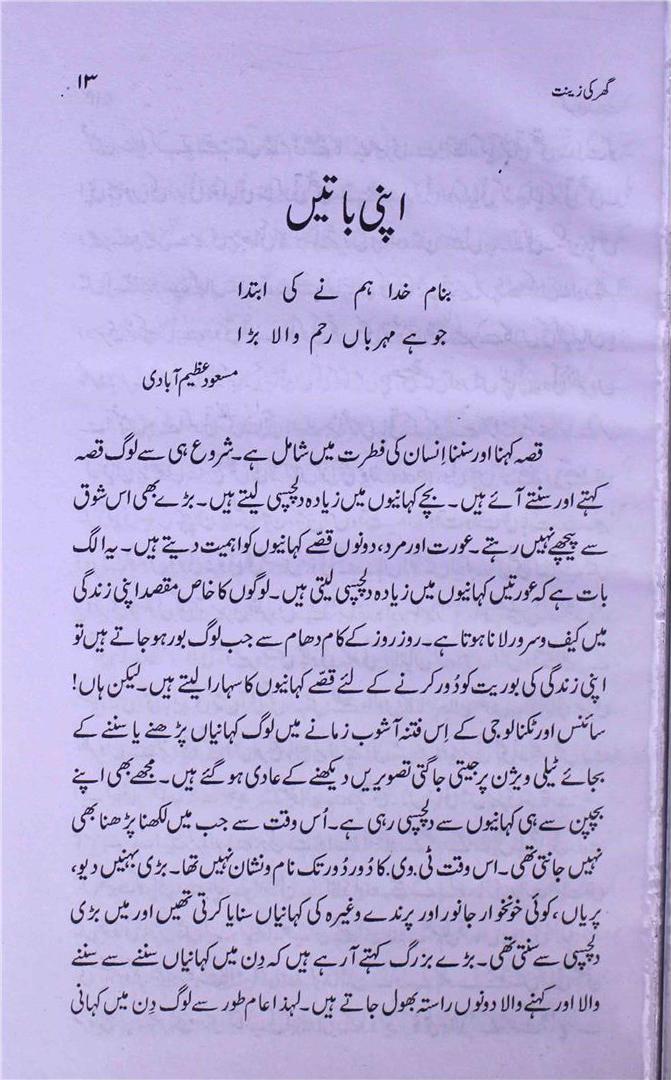 گھر کی زینت
۱۳
اپنی باتیں
بنام خدا ہم نے کی ابتدا
جو ہے مہرباں رحم والا بڑا
مسعود عظیم آبادی
قصہ کہنا اور سننا اِنسان کی فطرت میں شامل ہے۔ شروع ہی سے لوگ قصہ
کہتے اور سنتے آئے ہیں۔ بچے کہانیوں میں زیادہ دلچسپی لیتے ہیں۔ بڑے بھی اس شوق
سے پیچھے نہیں رہتے۔ عورت اور مرد، دونوں قصّے کہانیوں کو اہمیت دیتے ہیں۔ یہ الگ
بات ہے کہ عورتیں کہانیوں میں زیادہ دلچسپی لیتی ہیں۔ لوگوں کا خاص مقصد اپنی زندگی
میں کیف و سرور لانا ہوتا ہے۔ روز روز کے کام دھام سے جب لوگ بور ہو جاتے ہیں تو
اپنی زندگی کی بوریت کو دُور کرنے کے لئے قصّے کہانیوں کا سہارا لیتے ہیں۔ لیکن ہاں!
سائنس اور ٹکنالوجی کے اِس فتنہ آشوب زمانے میں لوگ کہانیاں پڑھنے یا سننے کے
بجائے ٹیلی ویژن پر جیتی جاگتی تصویریں دیکھنے کے عادی ہو گئے ہیں۔ مجھے بھی اپنے
بچپن سے ہی کہانیوں سے دلچسپی رہی ہے۔ اُس وقت سے جب میں لکھنا پڑھنا بھی
نہیں جانتی تھی۔ اس وقت ٹی.وی. کا دُور دُور تک نام و نشان نہیں تھا۔ بڑی بہنیں دیو،
پریاں، کوئی خونخوار جانور اور پرندے وغیرہ کی کہانیاں سنایا کرتی تھیں اور میں بڑی
دلچسپی سے سنتی تھی۔ بڑے بزرگ کہتے آ رہے ہیں کہ دِن میں کہانیاں سننے سے سننے
والا اور کہنے والا دونوں راستہ بھول جاتے ہیں۔ لہذا عام طور سے لوگ دِن میں کہانی